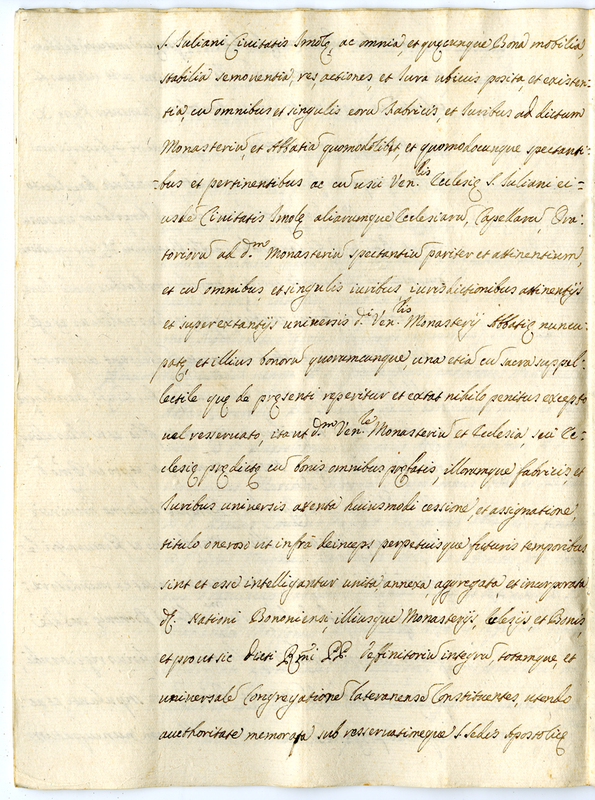 S. Iuliani Civitatis Imolę, ac omnia, et quęcunque Bona mobilia,
stabilia semoventia, res, actiones, et Iura ubicus posita, et existen-
tia, cū omnibus et singulis eorū fabricis, et Iuribus ad dictum
Monasteriū, et Abbatiā quomodolibet, et quomodocunque spectanti-
bus et pertinentibus ac cū usu Ven.lis Ecclesię S. Iuliani ei-
usdē Civitatis Imolę aliarumque Ecclesiarū, Capellarū, Ora-
toriorū ad d.m Monasteriū spectantiū pariter et attinentium,
et cū omnibus, et singulis iuribus iurisdictionibus attinentijs
et superextantijs universis d. Ven.lis Monasterij Abbatię nuncu-
patę, et illius bonorū quorumcunque, una etiā cū sacra suppel-
lectile quę de pręsenti reperitur et extat nihilo penitus excepto
vel reservato, ita ut d.m Ven.le Monasteriū et Ecclesia, seu Ec-
clesię prędictę cū bonis omnibus pręfatis, illorumque fabricis, et
Iuribus universis attenta huiusmodi cessione, et assignatione,
titulo oneroso ut infrà deinceps perpetuisque futuris temporibus
sint et esse intelligantur unita, annexa, aggregata, et incorporata
d. Nationi Bononiensi, illiusque Monasterijs, Eclesijs, et Bonis,
et prout sic dicti Rmi PP. Deffinitoriū integrū, totamque, et
universalē Congregationē Lateranensē Constituentes, utendo
aucthoritate memorata sub reservatineque S. Sedis Apostolicę